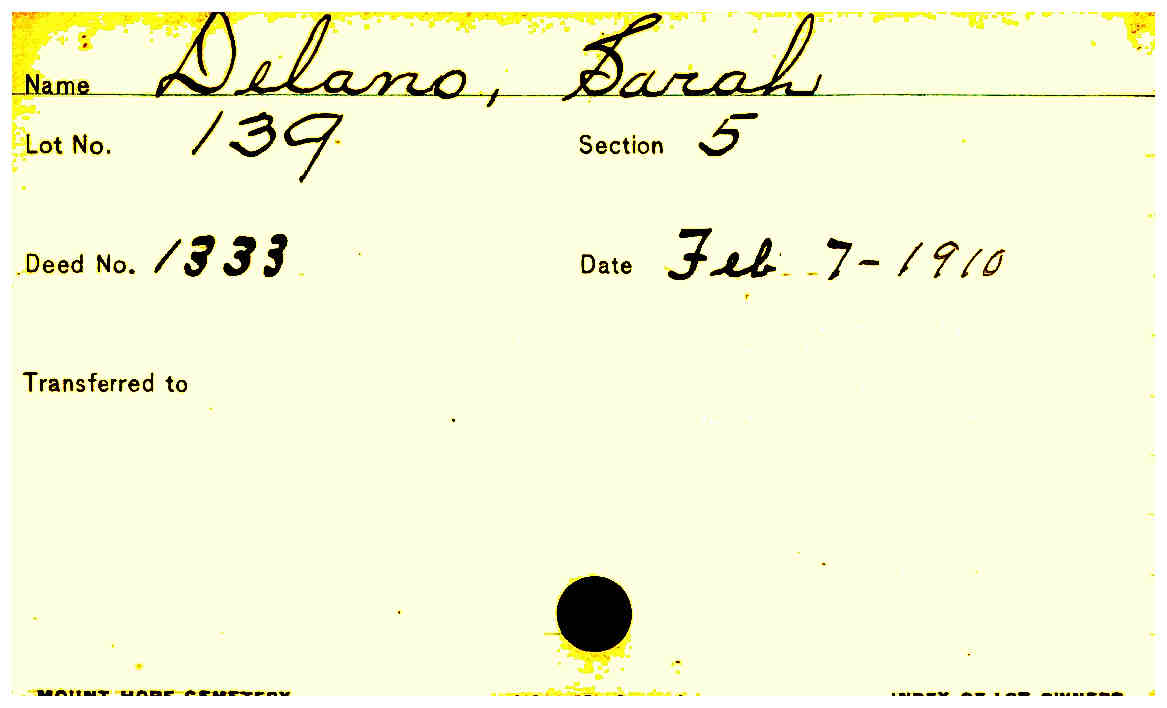 Name Delano, Sarah
Lot No. 139 Section 5
Deed No. 1333 Date Feb 7-1910
Transferred to
MOUNT HOPE CEMETERY INDEX OF LOT OWNERS